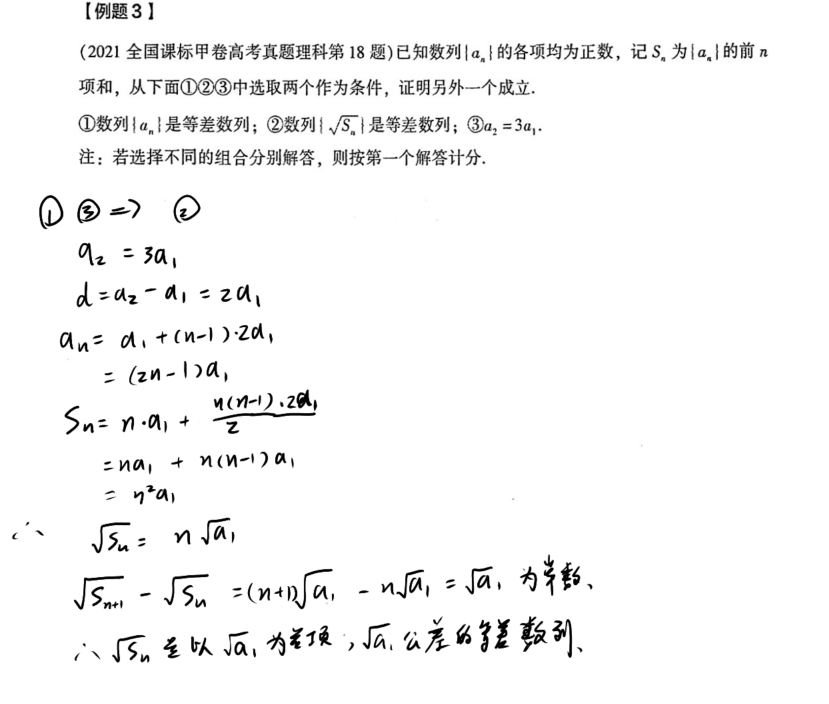 【例题3】
(2021全国课标甲卷高考真题理科第18题)已知数列{aₙ}的各项均为正数，记Sₙ为{aₙ}的前n
项和，从下面①②③中选取两个作为条件，证明另外一个成立.
①数列{aₙ}是等差数列；②数列{√Sₙ}是等差数列；③a₂=3a₁.
注：若选择不同的组合分别解答，则按第一个解答计分.
①③=>②
a₂=3a₁
d=a₂-a₁=2a₁
aₙ=a₁+(n-1)·2a₁
=(2n-1)a₁
Sₙ=n·a₁+n(n-1)·2a₁/2
=na₁+n(n-1)a₁
=n²a₁
∴ √Sₙ=n√a₁
√Sₙ₊₁-√Sₙ=(n+1)√a₁-n√a₁=√a₁为常数、
∴√Sₙ是以√a₁为首项，√a₁公差的等差数列、